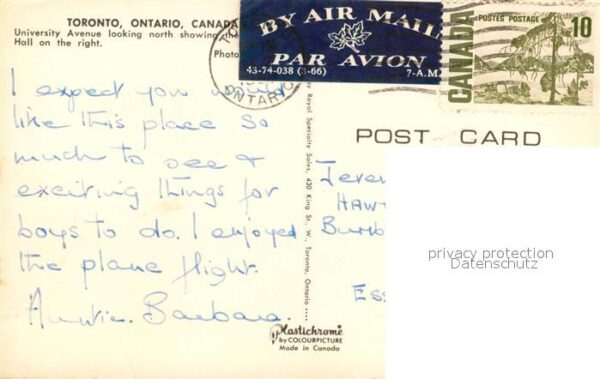 TORONTO, ONTARIO, CANADA
University Avenue looking north showing the
Hall on the right.
Photo
BY AIR MAIL
PAR AVION
43-74-038 (3-66) 7-A.M.
ONTARIO
CANADA
POSTES POSTAGE
10
I expect you would
like this place so
much to see &
exciting things for
boys to do. I enjoyed
the plane flight.
Auntie. Barbara.
Royal Specialty Sales, 430 King St. W., Toronto, Ontario
POST CARD
HAW
Es
privacy protection
Datenschutz
Plastichrome
by COLOURPICTURE
Made in Canada